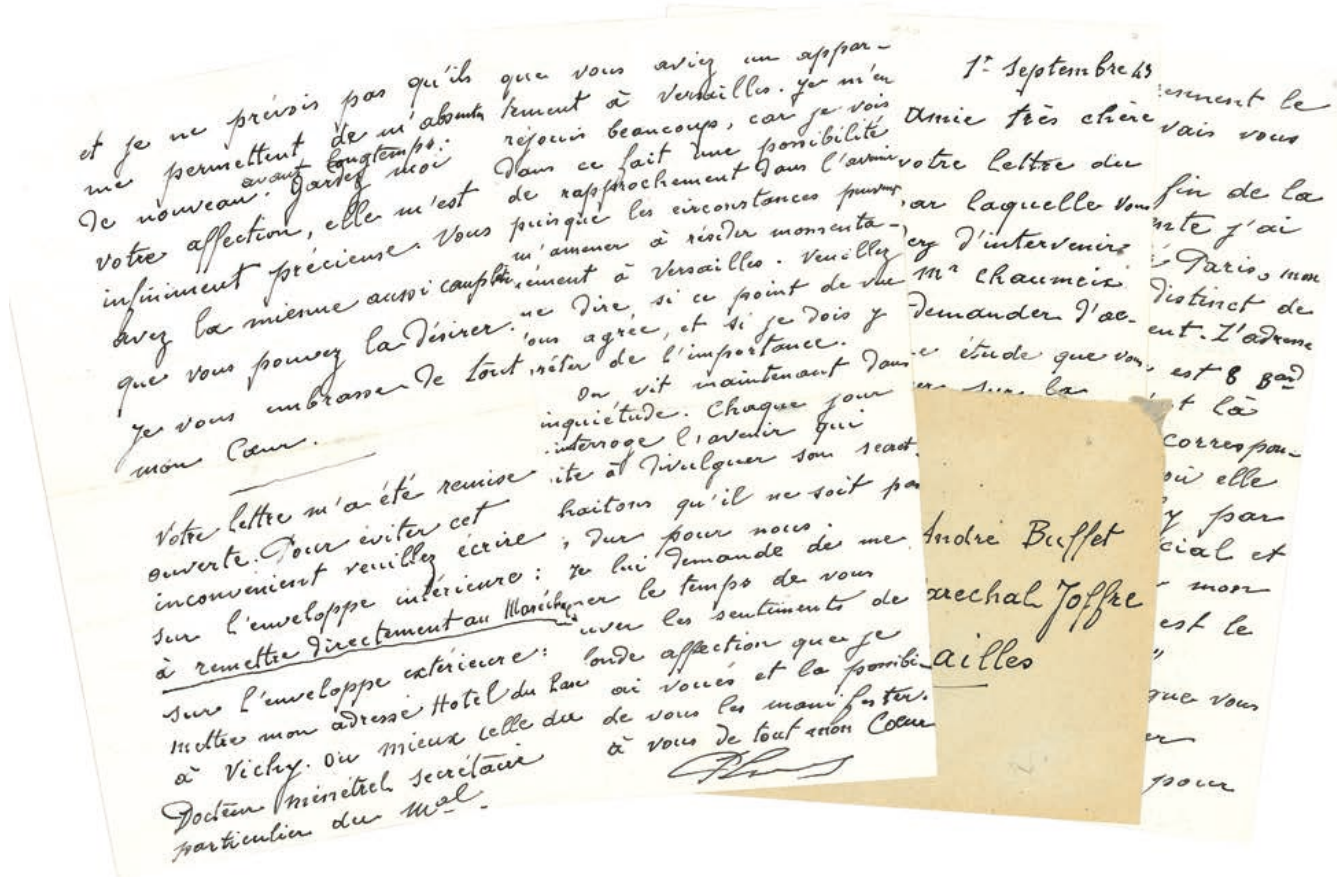 et je ne prévois pas qu'ils
me permettent de m'absenter
de nouveau avant longtemps. Gardez moi
votre affection, elle m'est
infiniment précieuse. Vous
avez la mienne aussi complète
que vous pouvez la désirer.
je vous embrasse de tout
mon Cœur.
Votre lettre m'a été remise
ouverte. Pour éviter cet
inconvénient veuillez écrire
sur l'enveloppe intérieure :
à remettre directement au Maréchal,
sur l'enveloppe extérieure :
mettre mon adresse Hotel du Parc
à Vichy. ou mieux celle du
Docteur Ménétrel secrétaire
particulier du Mal.
que vous aviez un appar-
tement à Versailles. je m'en
réjouis beaucoup, car je vois
dans ce fait une possibilité
de rapprochement dans l'avenir
puisque les circonstances peuvent
m'amener à résider momenta-
nément à Versailles. Veuillez
me dire, si ce point de vue
vous agrée, et si je dois y
prêter de l'importance.
On vit maintenant dans
inquiétude. Chaque jour
interroge l'avenir qui
ite à divulguer son secret.
haitons qu'il ne soit pas
dur pour nous.
je lui demande de me
ner le temps de vous
uver les sentiments de
onde affection que je
ai voués et la possibi-
de vous les manifester.
à vous de tout mon Cœur
1r Septembre 43
Amie très chère
votre lettre du
ar laquelle vous
ez d'intervenir
Mr Chaumeix
demander d'ac-
e étude que vous
er sur la
André Buffet
arechal Joffre
ailles
ennent le
vais vous
fin de la
nte j'ai
é Paris, mon
distinct de
ent. L'adresse
est 8 Bard
t là
correspon-
où elle
y par
cial et
mon
est le
que vous
er
pour